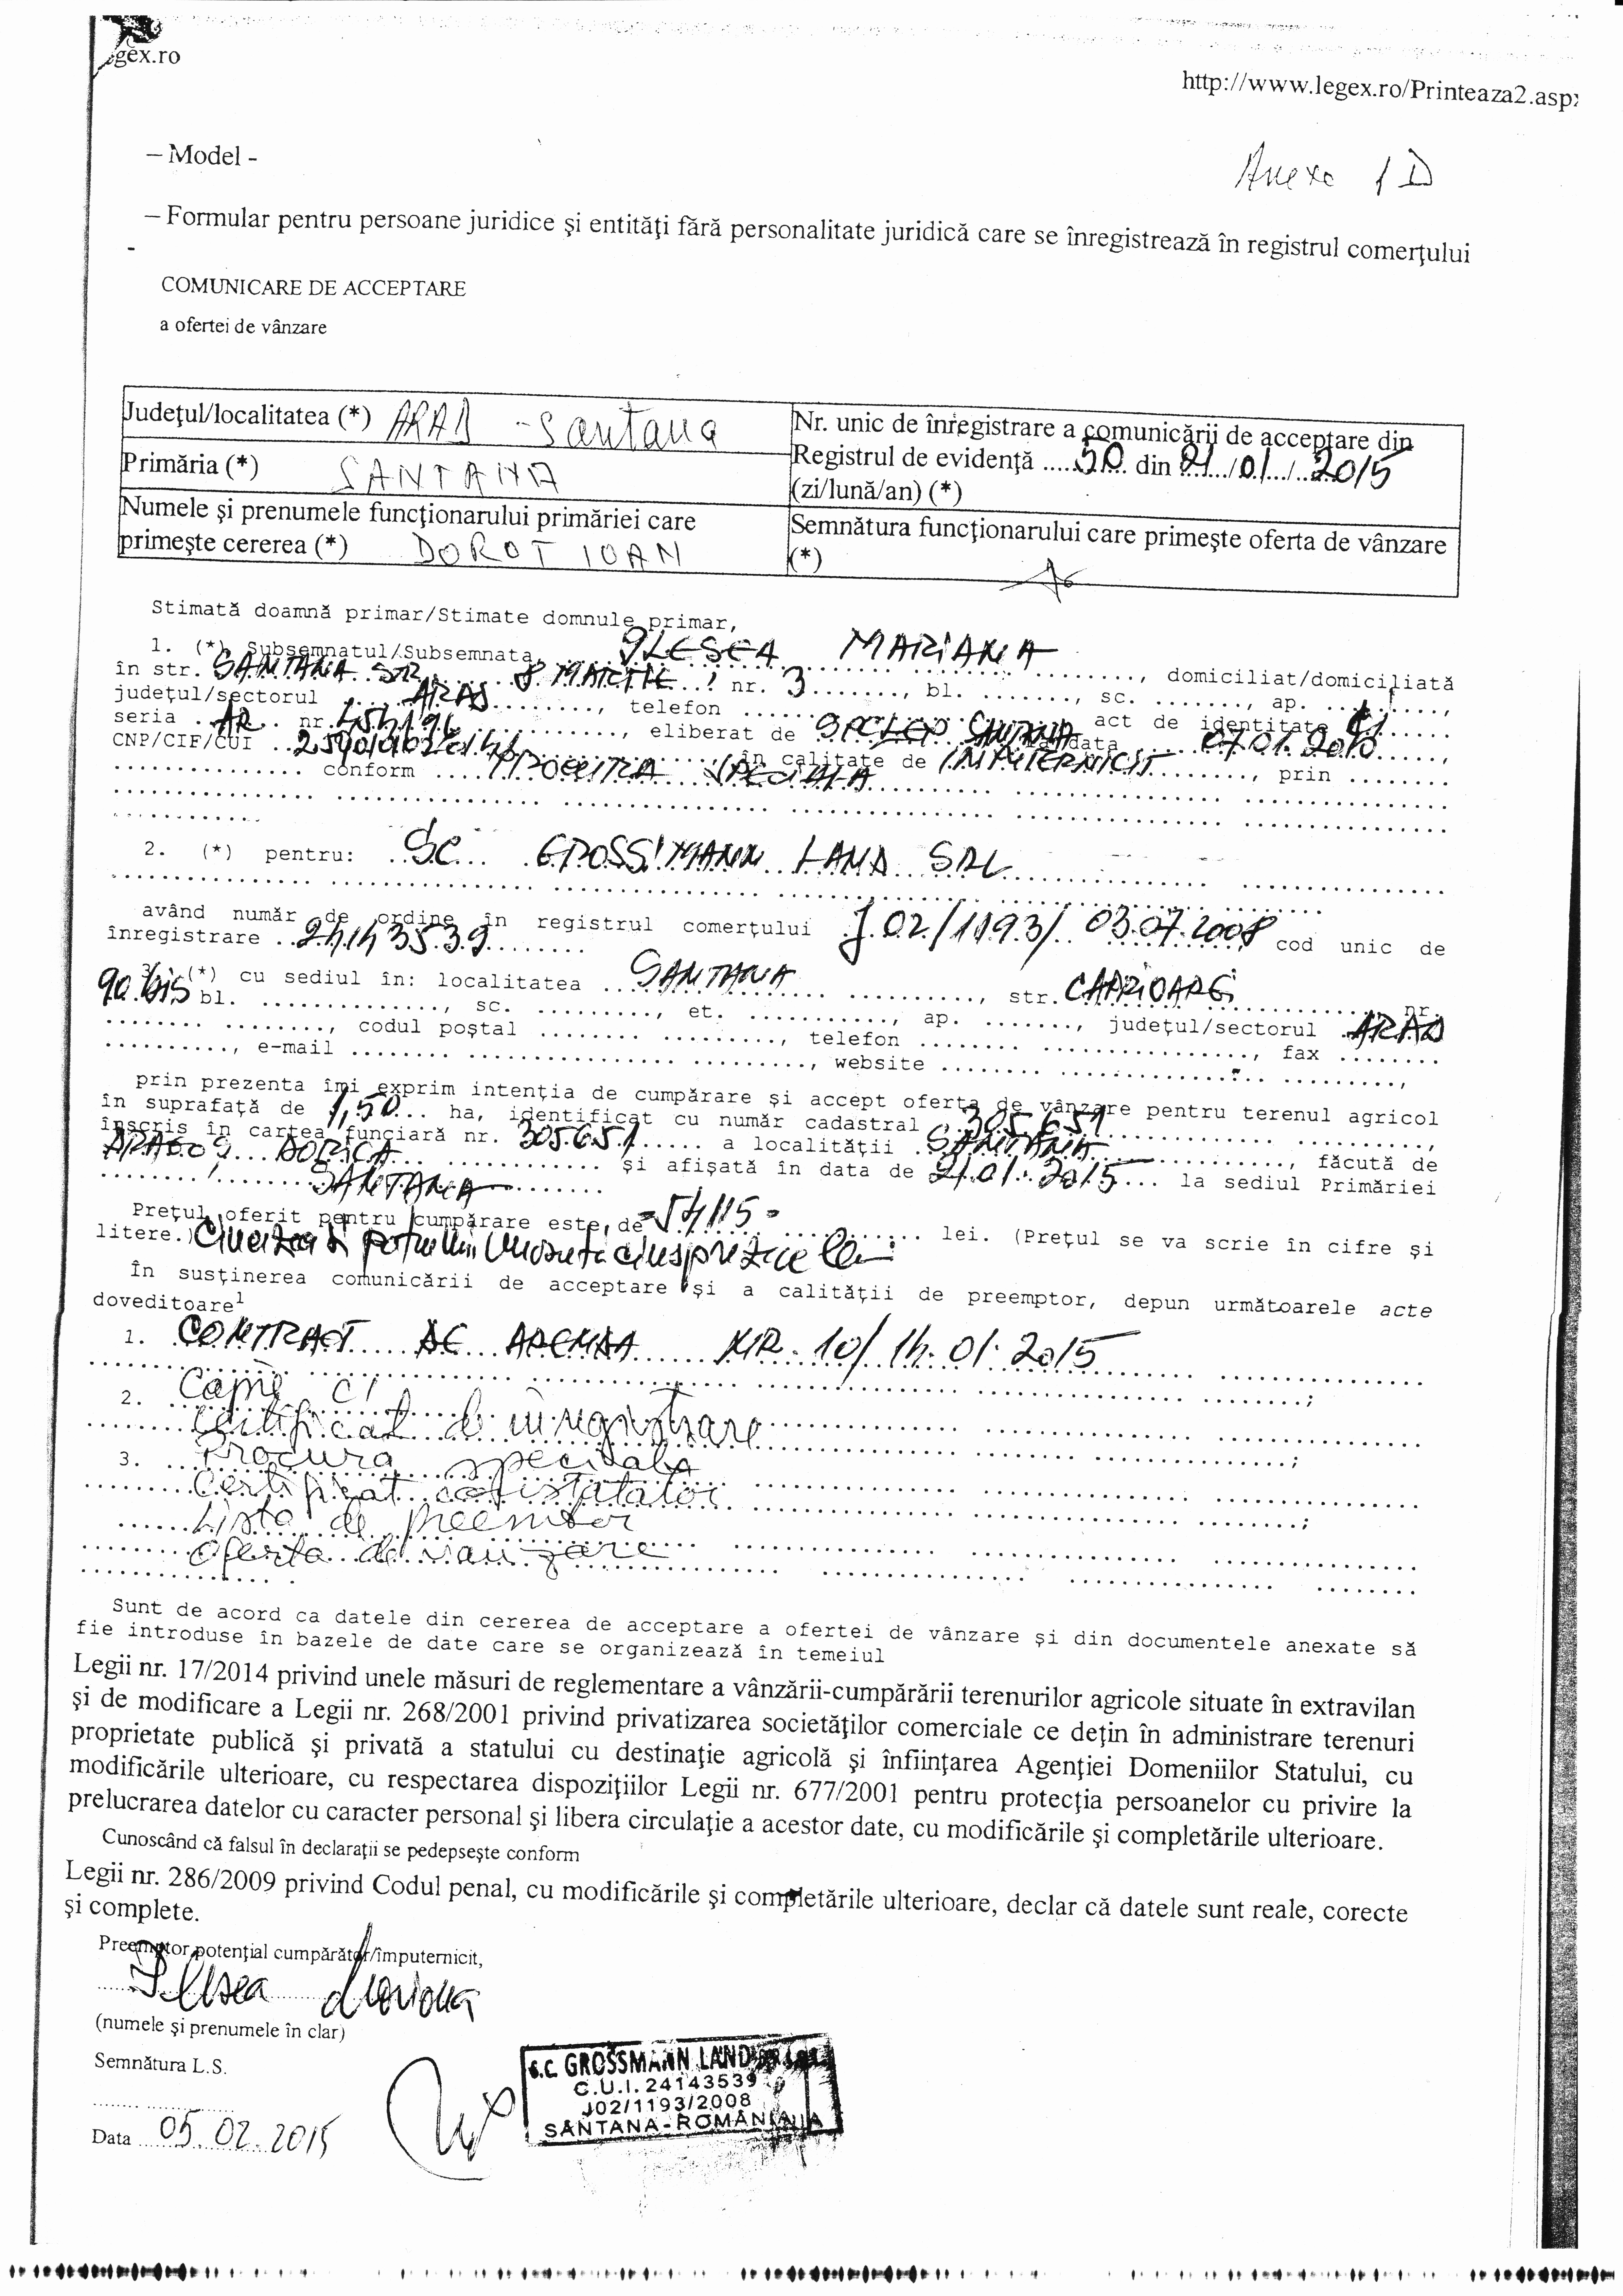 gex.ro
http://www.legex.ro/Printeaza2.asp
– Model -
Anexa 1D
– Formular pentru persoane juridice şi entităţi fără personalitate juridică care se înregistrează în registrul comerţului
-
COMUNICARE DE ACCEPTARE
a ofertei de vânzare
Judeţul/localitatea (*) ARAD - Santana
Nr. unic de înregistrare a comunicării de acceptare din
Registrul de evidenţă ......50.... din 21/01/2015
(zi/lună/an) (*)
Primăria (*) SANTANA
Numele şi prenumele funcţionarului primăriei care
primeşte cererea (*) DOROT IOAN
Semnătura funcţionarului care primeşte oferta de vânzare
(*)
Stimată doamnă primar/Stimate domnule primar,
1. (*) Subsemnatul/Subsemnata, ILESEA MARIANA ........., domiciliat/domiciliată
în str. SANTANA STR. 8 MARTIE nr. 3 ......., bl. ......., sc. ......., ap. .........,
judeţul/sectorul ... ARAD .........., telefon ............... act de identitate CI
seria .AR.. nr. ..........., eliberat de SPCLEP SANTANA la data 07.01.2010
CNP/CIF/CUI ......, în calitate de IMPUTERNICIT ........, prin .........
............... conform .... PROCURA SPECIALA
2. (*) pentru: SC GROSSMANN LAND SRL
având număr de ordine în registrul comerţului J.02/1193/ 03.07.2008 cod unic de
înregistrare ..24143539........
3. (*) cu sediul în: localitatea ...SANTANA ..........., str. CAPRIOAREI ........, nr.
90 bis bl. ..............., sc. ........., et. ..........., ap. ......., judeţul/sectorul ARAD
........ ........, codul poştal ........ ........., telefon ........ ..............., fax ........
.........., e-mail ........ ................ ........., website ........ ............... .........,
prin prezenta îmi exprim intenţia de cumpărare şi accept oferta de vânzare pentru terenul agricol
în suprafaţă de 1,50... ha, identificat cu număr cadastral ..305651 ..........,
înscris în cartea funciară nr. 305651...... a localităţii SANTANA ............, făcută de
DORICA ............ şi afişată în data de 21.01.2015.... la sediul Primăriei
SANTANA
Preţul oferit pentru cumpărare este, de =54115= ........... lei. (Preţul se va scrie în cifre şi
litere.)
În susţinerea comunicării de acceptare şi a calităţii de preemptor, depun următoarele acte
doveditoare1
1. CONTRACT DE ARENDA NR. 10/14.01.2015
2. Copie CI
Certificat de inregistrare
3. Procura speciala
Certificat constatator
Lista de preemtor
Oferta de vanzare
Sunt de acord ca datele din cererea de acceptare a ofertei de vânzare şi din documentele anexate să
fie introduse în bazele de date care se organizează în temeiul
Legii nr. 17/2014 privind unele măsuri de reglementare a vânzării-cumpărării terenurilor agricole situate în extravilan
şi de modificare a Legii nr. 268/2001 privind privatizarea societăţilor comerciale ce deţin în administrare terenuri
proprietate publică şi privată a statului cu destinaţie agricolă şi înfiinţarea Agenţiei Domeniilor Statului, cu
modificările ulterioare, cu respectarea dispoziţiilor Legii nr. 677/2001 pentru protecţia persoanelor cu privire la
prelucrarea datelor cu caracter personal şi libera circulaţie a acestor date, cu modificările şi completările ulterioare.
Cunoscând că falsul în declaraţii se pedepseşte conform
Legii nr. 286/2009 privind Codul penal, cu modificările şi completările ulterioare, declar că datele sunt reale, corecte
şi complete.
Preemptor potenţial cumpărător/împuternicit,
Ilesea Mariana
(numele şi prenumele în clar)
Semnătura L.S.
........ ...............
Data 05.02.2015
S.C. GROSSMANN LAND
C.U.I. 24143539
J02/1193/2008
SANTANA-ROMANIA